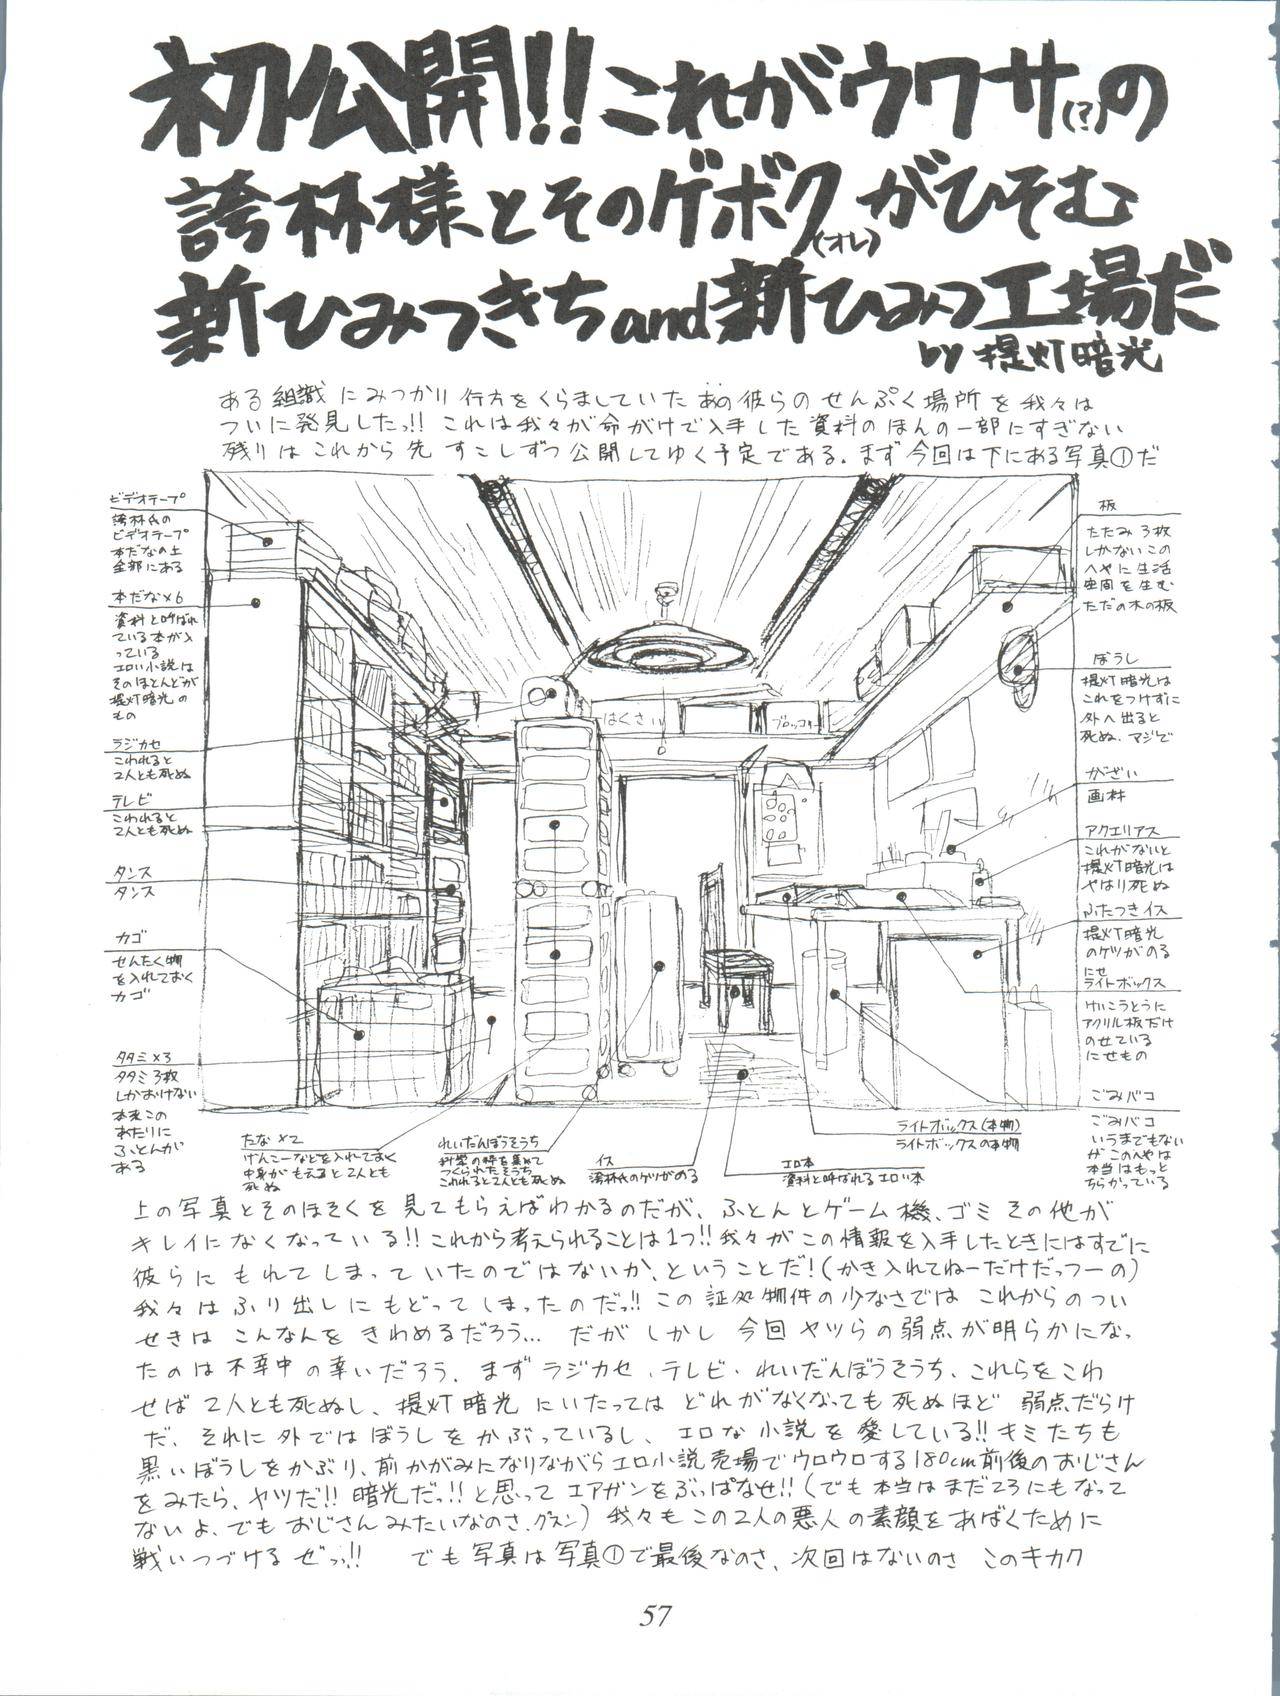 初公開!!これがウワサ(?)の
誇林様とそのゲボク(オレ)がひそむ
新ひみつきちand新ひみつ工場だ
by 提灯暗光
ある組識にみつかり行方をくらましていたあの彼らのせんぷく場所を我々は
ついに発見したっ!!これは我々が命がけで入手した資料のほんの一部にすぎない
残りはこれから先すこしずつ公開してゆく予定である。まず今回は下にある写真①だ
ビデオテープ
誇林氏の
ビデオテープ
本だなの上
全部にある
本だな×6
資料と呼ばれ
ている本が入
っている
エロい小説は
そのほとんどが
提灯暗光の
もの
ラジカセ
こわれると
2人とも死ぬ
テレビ
こわれると
2人とも死ぬ
タンス
タンス
カゴ
せんたく物
を入れておく
カゴ
タタミ×3
タタミ3枚
しかおけない
本来この
あたりに
ふとんが
ある
はくさい
ブロッコリー
板
たたみ3枚
しかないこの
へやに生活
空間を生む
ただの木の板
ぼうし
提灯暗光は
これをつけずに
外へ出ると
死ぬ、マジで
がざい
画材
アクエリアス
これがないと
提灯暗光は
やはり死ぬ
ふたつきイス
提灯暗光
のケツがのる
にせ
ライトボックス
けいこうとうに
アクリル板だけ
のせている
にせもの
ごみバコ
ごみバコ
いうまでもない
がこのへやは
本当はもっと
ちらかっている
たな×2
げんこーなどを入れておく
中身がもえると2人とも
死ぬ
れいだんぼうそうち
科学の粋を集めて
つくられたそうち
これれると2人とも死ぬ
イス
誇林氏のケツがのる
エロ本
資料と呼ばれるエロい本
ライトボックス(本物)
ライトボックスの本物
上の写真とそのほそくを見てもらえばわかるのだが、ふとんとゲーム機、ゴミその他が
キレイになくなっている!!これから考えられることは1つ!!我々がこの情報を入手したときにはすでに
彼らにもれてしまっていたのではないか、ということだ!(かき入れてねーだけだっつーの)
我々はふり出しにもどってしまったのだっ!!この証処物件の少なさではこれからのつい
せきはこんなんをきわめるだろう…だがしかし今回ヤツらの弱点が明らかになっ
たのは不幸中の幸いだろう。まずラジカセ、テレビ、れいだんぼうそうち、これらをこわ
せば2人とも死ぬし、提灯暗光にいたってはどれがなくなっても死ぬほど弱点だらけ
だ、それに外ではぼうしをかぶっているし、エロな小説を愛している!!キミたちも
黒いぼうしをかぶり、前かがみになりながらエロ小説売場でウロウロする180cm前後のおじさん
をみたら、ヤツだ!!暗光だっ!!と思ってエアガンをぶっぱなせ!!(でも本当はまだ23にもなって
ないよ、でもおじさんみたいなのさ、グスン)我々もこの2人の悪人の素顔をあばくために
戦いつづけるぜっっ!!でも写真は写真①で最後なのさ、次回はないのさこのキカク
57